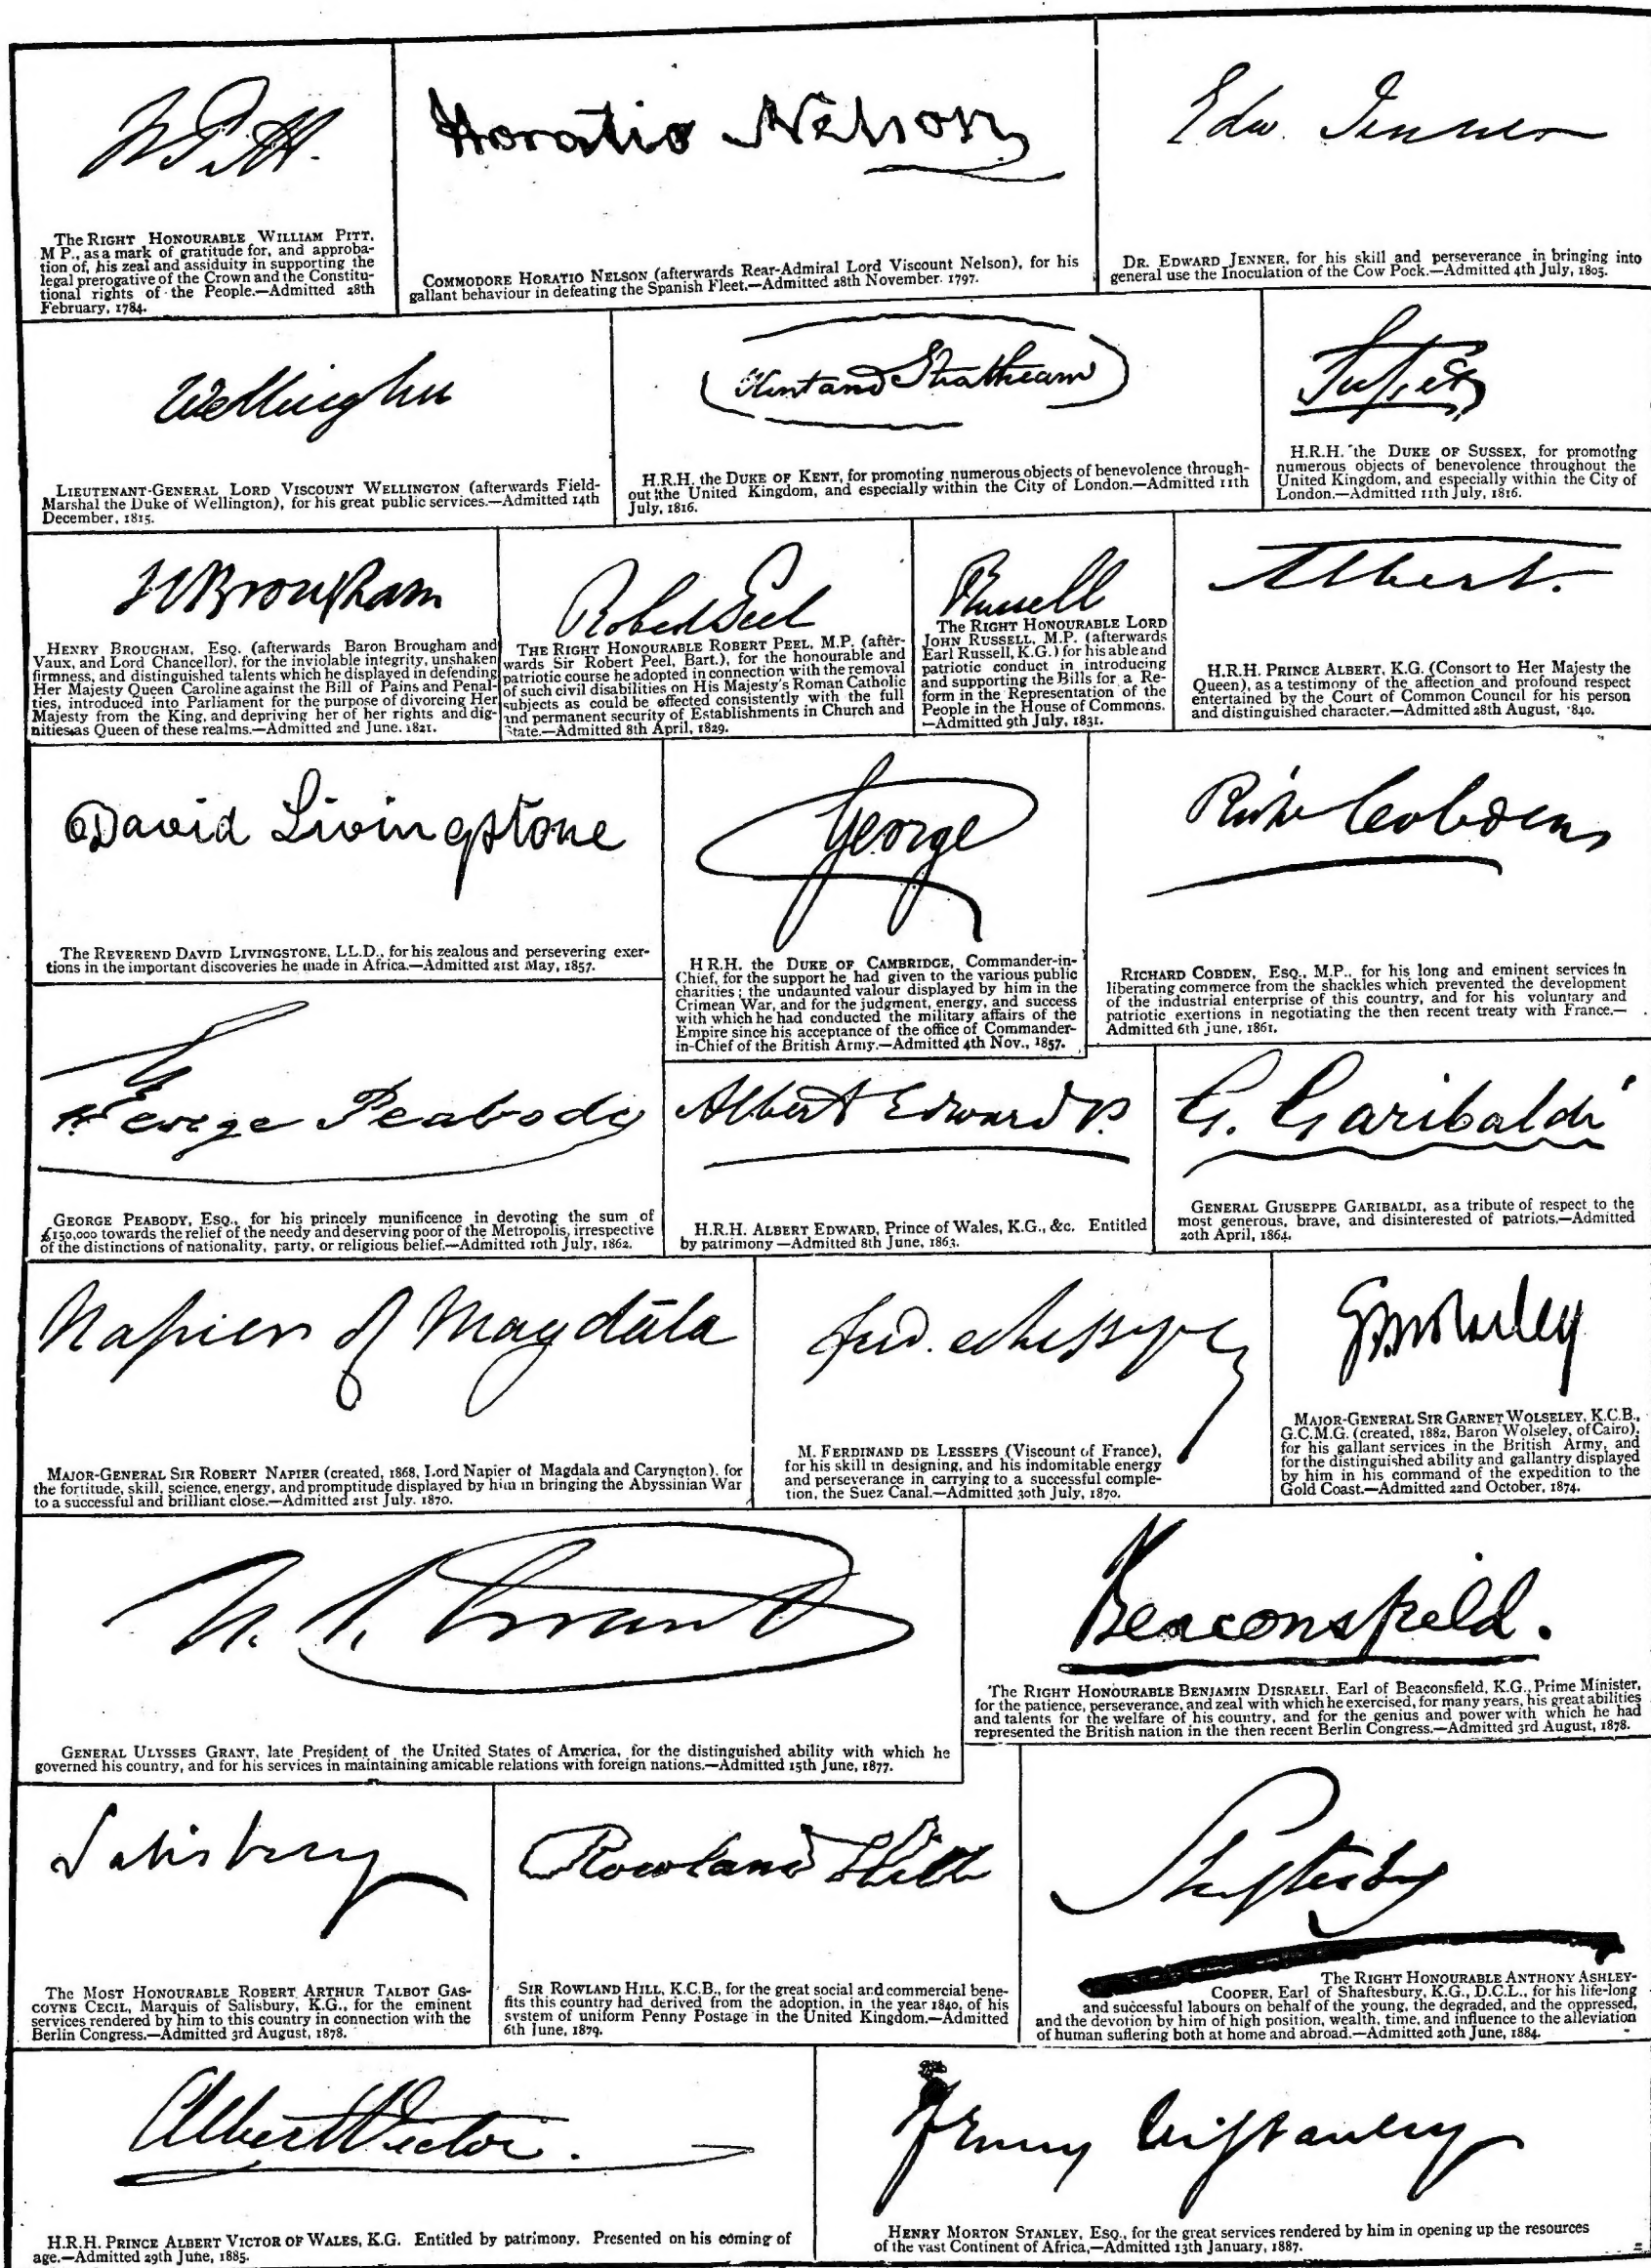 W Pitt.
The RIGHT HONOURABLE WILLIAM PITT,
M P., as a mark of gratitude for, and approba-
tion of, his zeal and assiduity in supporting the
legal prerogative of the Crown and the Constitu-
tional rights of the People.—Admitted 28th
February, 1784.
Horatio Nelson
COMMODORE HORATIO NELSON (afterwards Rear-Admiral Lord Viscount Nelson), for his
gallant behaviour in defeating the Spanish Fleet.—Admitted 28th November. 1797.
Edw. Jenner
DR. EDWARD JENNER, for his skill and perseverance in bringing into
general use the Inoculation of the Cow Pock.—Admitted 4th July, 1805.
Wellington
LIEUTENANT-GENERAL LORD VISCOUNT WELLINGTON (afterwards Field-
Marshal the Duke of Wellington), for his great public services.—Admitted 14th
December, 1815.
Kent and Strathearn
H.R.H. the DUKE OF KENT, for promoting numerous objects of benevolence through-
out the United Kingdom, and especially within the City of London.—Admitted 11th
July, 1816.
H.R.H. the DUKE OF SUSSEX, for promoting
numerous objects of benevolence throughout the
United Kingdom, and especially within the City of
London.—Admitted 11th July, 1816.
H Brougham
HENRY BROUGHAM, ESQ. (afterwards Baron Brougham and
Vaux, and Lord Chancellor), for the inviolable integrity, unshaken
firmness, and distinguished talents which he displayed in defending
Her Majesty Queen Caroline against the Bill of Pains and Penal-
ties, introduced into Parliament for the purpose of divorcing Her
Majesty from the King, and depriving her of her rights and dig-
nities as Queen of these realms.—Admitted 2nd June. 1821.
Robert Peel
THE RIGHT HONOURABLE ROBERT PEEL, M.P. (after-
wards Sir Robert Peel, Bart.), for the honourable and
patriotic course he adopted in connection with the removal
of such civil disabilities on His Majesty's Roman Catholic
subjects as could be effected consistently with the full
and permanent security of Establishments in Church and
State.—Admitted 8th April, 1829.
Russell
The RIGHT HONOURABLE LORD
JOHN RUSSELL, M.P. (afterwards
Earl Russell, K.G.) for his able and
patriotic conduct in introducing
and supporting the Bills for a Re-
form in the Representation of the
People in the House of Commons.
—Admitted 9th July, 1831.
Albert.
H.R.H. PRINCE ALBERT, K.G. (Consort to Her Majesty the
Queen), as a testimony of the affection and profound respect
entertained by the Court of Common Council for his person
and distinguished character.—Admitted 28th August, 840.
David Livingstone
The REVEREND DAVID LIVINGSTONE, LL.D., for his zealous and persevering exer-
tions in the important discoveries he made in Africa.—Admitted 21st May, 1857.
George
H R.H. the DUKE OF CAMBRIDGE, Commander-in-
Chief, for the support he had given to the various public
charities; the undaunted valour displayed by him in the
Crimean War, and for the judgment, energy, and success
with which he had conducted the military affairs of the
Empire since his acceptance of the office of Commander-
in-Chief of the British Army.—Admitted 4th Nov., 1857.
Richd Cobden
RICHARD COBDEN, ESQ., M.P., for his long and eminent services in
liberating commerce from the shackles which prevented the development
of the industrial enterprise of this country, and for his voluntary and
patriotic exertions in negotiating the then recent treaty with France.—
Admitted 6th june, 1861.
George Peabody
GEORGE PEABODY, ESQ., for his princely munificence in devoting the sum of
£150,000 towards the relief of the needy and deserving poor of the Metropolis, irrespective
of the distinctions of nationality, party, or religious belief.—Admitted 10th July, 1862.
Albert Edward P.
H.R.H. ALBERT EDWARD, Prince of Wales, K.G., &c. Entitled
by patrimony—Admitted 8th June, 1863.
G. Garibaldi
GENERAL GIUSEPPE GARIBALDI, as a tribute of respect to the
most generous, brave, and disinterested of patriots.—Admitted
20th April, 1864.
Napier of Magdala
MAJOR-GENERAL SIR ROBERT NAPIER (created, 1868, Lord Napier of Magdala and Caryngton), for
the fortitude, skill, science, energy, and promptitude displayed by him in bringing the Abyssinian War
to a successful and brilliant close.—Admitted 21st July. 1870.
Ferd. de Lesseps
M. FERDINAND DE LESSEPS (Viscount of France),
for his skill in designing, and his indomitable energy
and perseverance in carrying to a successful comple-
tion, the Suez Canal.—Admitted 30th July, 1870.
G Wolseley
MAJOR-GENERAL SIR GARNET WOLSELEY, K.C.B.,
G.C.M.G. (created, 1882, Baron Wolseley, of Cairo),
for his gallant services in the British Army, and
for the distinguished ability and gallantry displayed
by him in his command of the expedition to the
Gold Coast.—Admitted 22nd October, 1874.
U. S. Grant
GENERAL ULYSSES GRANT, late President of the United States of America, for the distinguished ability with which he
governed his country, and for his services in maintaining amicable relations with foreign nations.—Admitted 15th June, 1877.
Beaconsfield.
The RIGHT HONOURABLE BENJAMIN DISRAELI, Earl of Beaconsfield, K.G., Prime Minister,
for the patience, perseverance, and zeal with which he exercised, for many years, his great abilities
and talents for the welfare of his country, and for the genius and power with which he had
represented the British nation in the then recent Berlin Congress.—Admitted 3rd August, 1878.
Salisbury
The MOST HONOURABLE ROBERT ARTHUR TALBOT GAS-
COYNE CECIL, Marquis of Salisbury, K.G., for the eminent
services rendered by him to this country in connection with the
Berlin Congress.—Admitted 3rd August, 1878.
Rowland Hill
SIR ROWLAND HILL, K.C.B., for the great social and commercial bene-
fits this country had derived from the adoption, in the year 1840, of his
system of uniform Penny Postage in the United Kingdom.—Admitted
6th June, 1879.
Shaftesbury
The RIGHT HONOURABLE ANTHONY ASHLEY-
COOPER, Earl of Shaftesbury, K.G., D.C.L., for his life-long
and successful labours on behalf of the young, the degraded, and the oppressed,
and the devotion by him of high position, wealth, time, and influence to the alleviation
of human suffering both at home and abroad.—Admitted 20th June, 1884.
Albert Victor.
H.R.H. PRINCE ALBERT VICTOR OF WALES, K.G. Entitled by patrimony. Presented on his coming of
age.—Admitted 29th June, 1885.
Henry M Stanley
HENRY MORTON STANLEY, ESQ., for the great services rendered by him in opening up the resources
of the vast Continent of Africa,—Admitted 13th January, 1887.